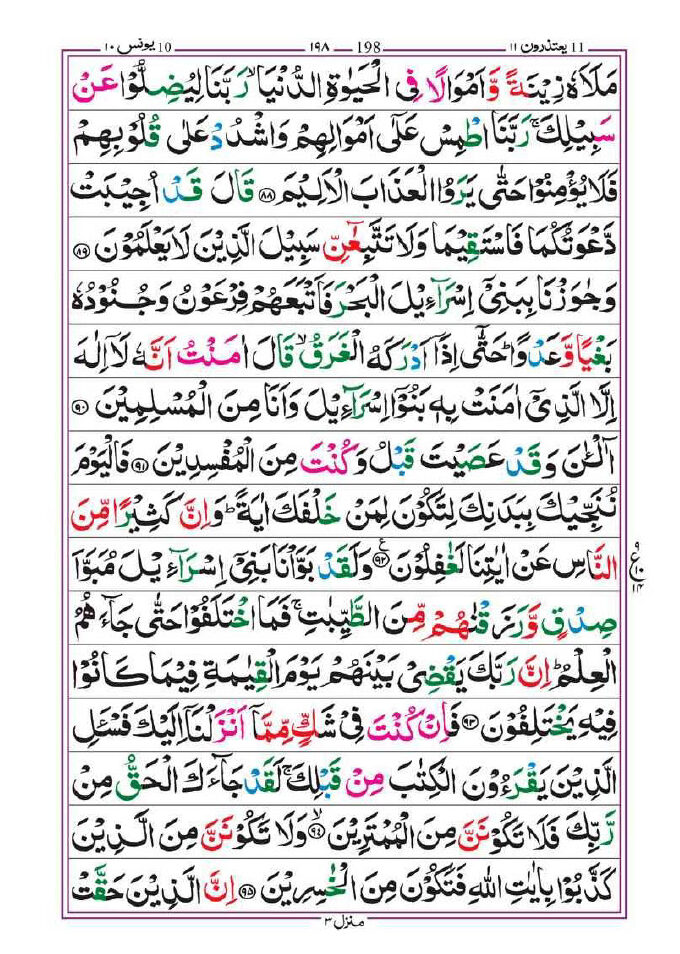 11 یعتذرون ۱۱ 198 ۱۹۸ 10 یونس ۱۰
مَلَاَهٗ زِيْنَةً وَّ اَمْوَالًا فِي الْحَيٰوةِ الدُّنْيَا ۙ رَبَّنَا لِيُضِلُّوْا عَنْ
سَبِيْلِكَ ۚ رَبَّنَا اطْمِسْ عَلٰٓى اَمْوَالِهِمْ وَاشْدُدْ عَلٰى قُلُوْبِهِمْ
فَلَا يُؤْمِنُوْا حَتّٰى يَرَوُا الْعَذَابَ الْاَلِيْمَ ۸۸ قَالَ قَدْ اُجِيْبَتْ
دَّعْوَتُكُمَا فَاسْتَقِيْمَا وَلَا تَتَّبِعٰٓنِّ سَبِيْلَ الَّذِيْنَ لَا يَعْلَمُوْنَ ۸۹
وَجٰوَزْنَا بِبَنِيْٓ اِسْرَآءِيْلَ الْبَحْرَ فَاَتْبَعَهُمْ فِرْعَوْنُ وَجُنُوْدُهٗ
بَغْيًا وَّعَدْوًا ؕ حَتّٰٓى اِذَآ اَدْرَكَهُ الْغَرَقُ ۙ قَالَ اٰمَنْتُ اَنَّهٗ لَآ اِلٰهَ
اِلَّا الَّذِيْٓ اٰمَنَتْ بِهٖ بَنُوْٓا اِسْرَآءِيْلَ وَاَنَا مِنَ الْمُسْلِمِيْنَ ۹۰
آٰلْـٰٔنَ وَقَدْ عَصَيْتَ قَبْلُ وَكُنْتَ مِنَ الْمُفْسِدِيْنَ ۹۱ فَالْيَوْمَ
نُنَجِّيْكَ بِبَدَنِكَ لِتَكُوْنَ لِمَنْ خَلْفَكَ اٰيَةً ؕ وَاِنَّ كَثِيْرًا مِّنَ
النَّاسِ عَنْ اٰيٰتِنَا لَغٰفِلُوْنَ ۹۲ ع وَلَقَدْ بَوَّاْنَا بَنِيْٓ اِسْرَآءِيْلَ مُبَوَّاَ
۹ ع ۱۴
صِدْقٍ وَّرَزَقْنٰهُمْ مِّنَ الطَّيِّبٰتِ ۚ فَمَا اخْتَلَفُوْا حَتّٰى جَآءَهُمُ
الْعِلْمُ ؕ اِنَّ رَبَّكَ يَقْضِيْ بَيْنَهُمْ يَوْمَ الْقِيٰمَةِ فِيْمَا كَانُوْا
فِيْهِ يَخْتَلِفُوْنَ ۹۳ فَاِنْ كُنْتَ فِيْ شَكٍّ مِّمَّآ اَنْزَلْنَآ اِلَيْكَ فَسْـَٔلِ
الَّذِيْنَ يَقْرَءُوْنَ الْكِتٰبَ مِنْ قَبْلِكَ ۚ لَقَدْ جَآءَكَ الْحَقُّ مِنْ
رَّبِّكَ فَلَا تَكُوْنَنَّ مِنَ الْمُمْتَرِيْنَ ۙ ۹۴ وَلَا تَكُوْنَنَّ مِنَ الَّذِيْنَ
كَذَّبُوْا بِاٰيٰتِ اللّٰهِ فَتَكُوْنَ مِنَ الْخٰسِرِيْنَ ۹۵ اِنَّ الَّذِيْنَ حَقَّتْ
منزل ۳